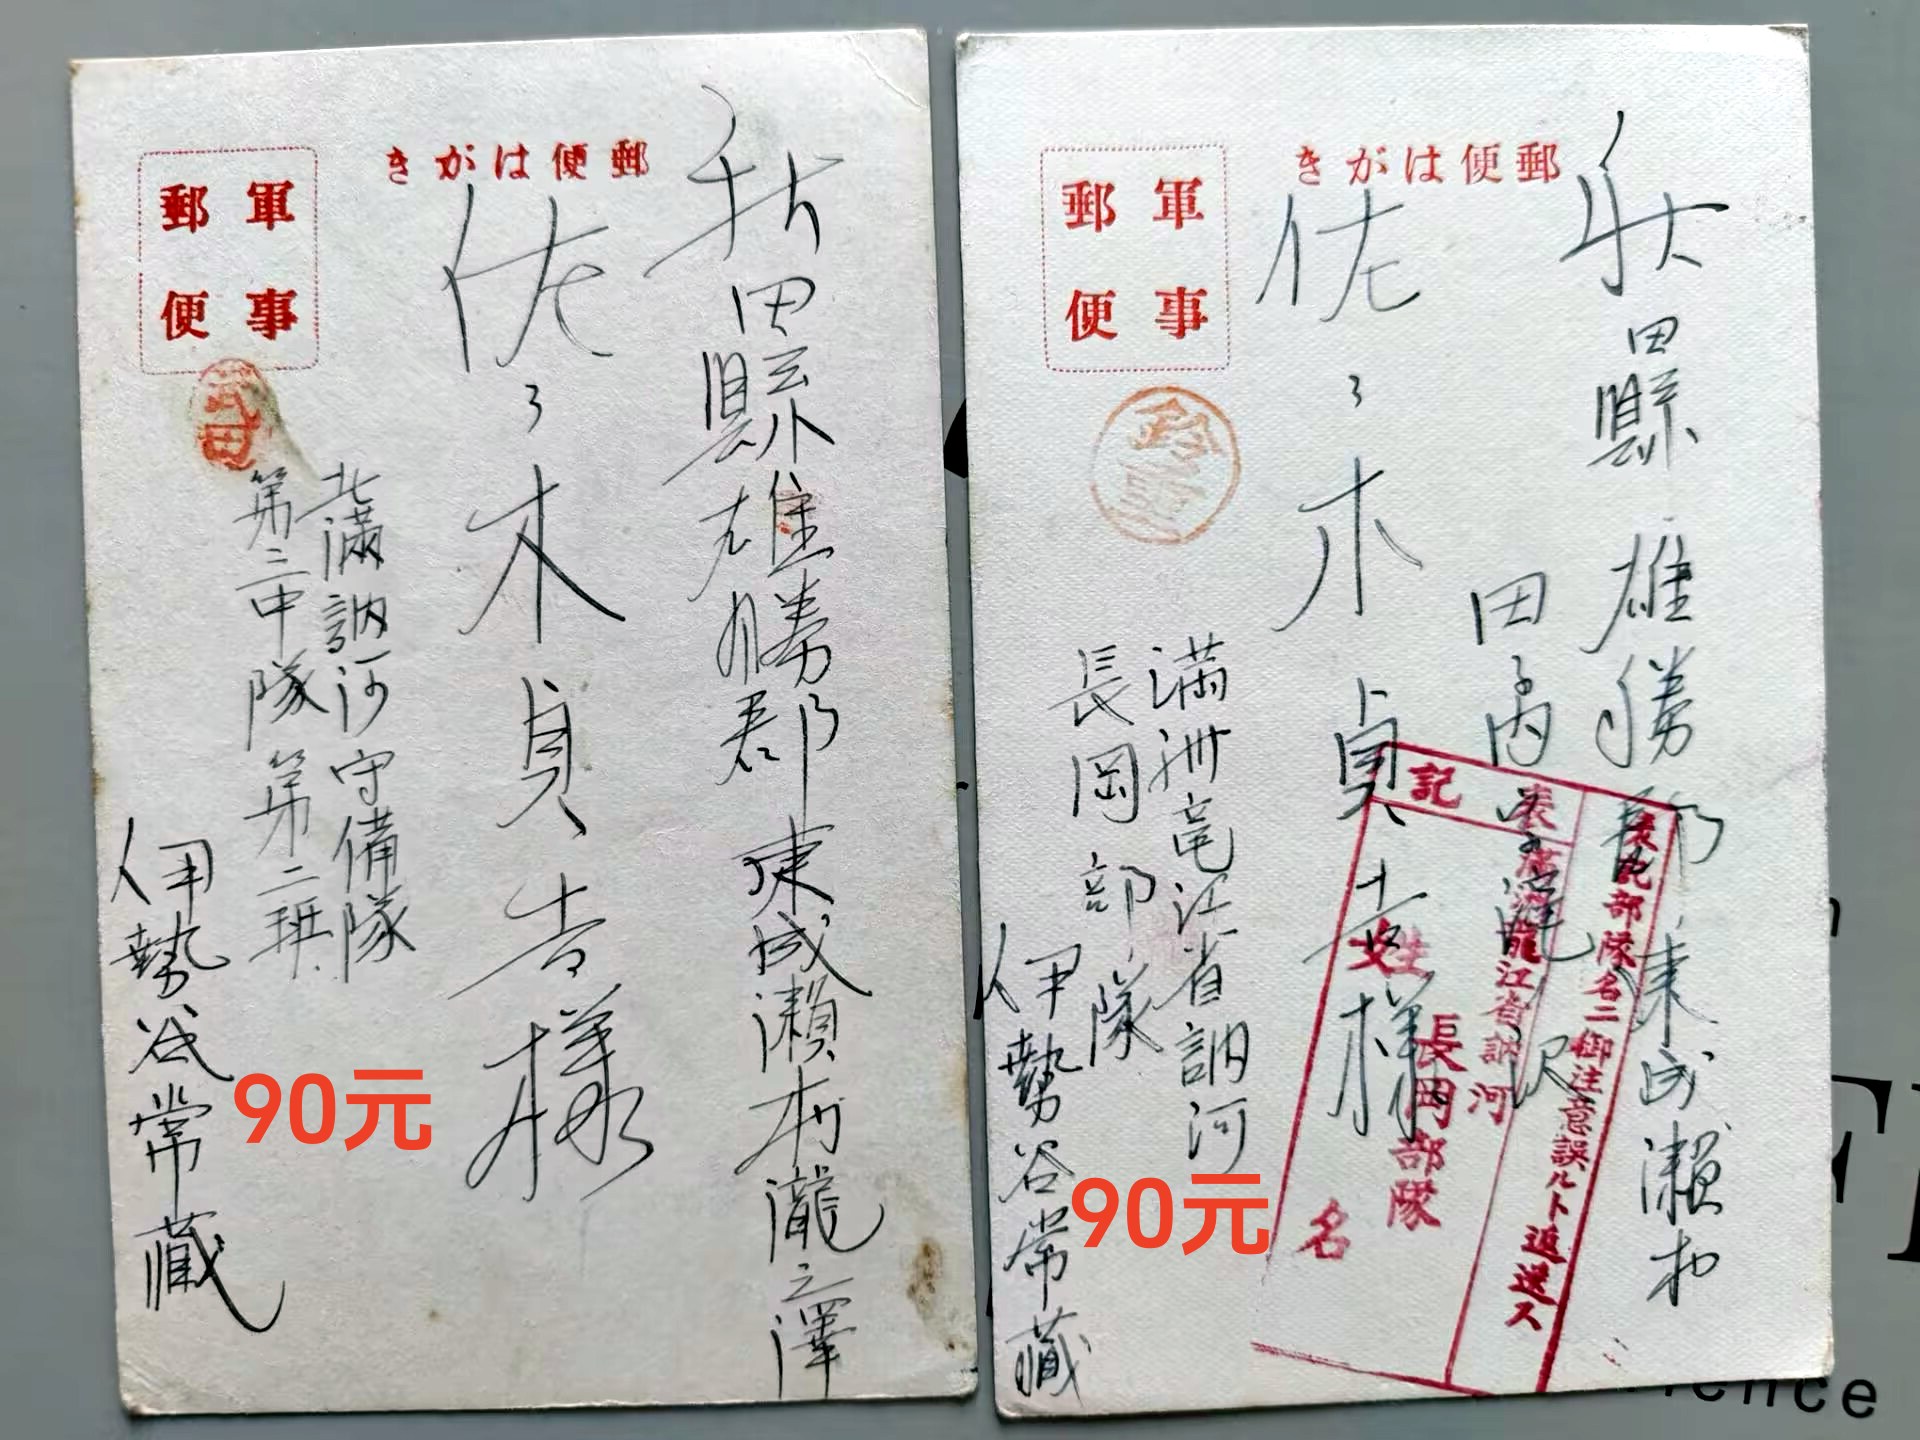 郵便はがき
軍事
郵便
武田
秋田縣雄勝郡東成瀬村瀧之澤
佐々木貞吉様
北滿訥河守備隊
第三中隊第二班
伊勢谷常藏
90元
郵便はがき
軍事
郵便
秋田縣雄勝郡東成瀬村
田子内
佐々木貞吉様
満洲竜江省訥河
長岡部隊
伊勢谷常藏
表記部隊名ニ御注意誤ルト返送ス
表記
満洲龍江省訥河
長岡部隊
姓
名
90元
ence